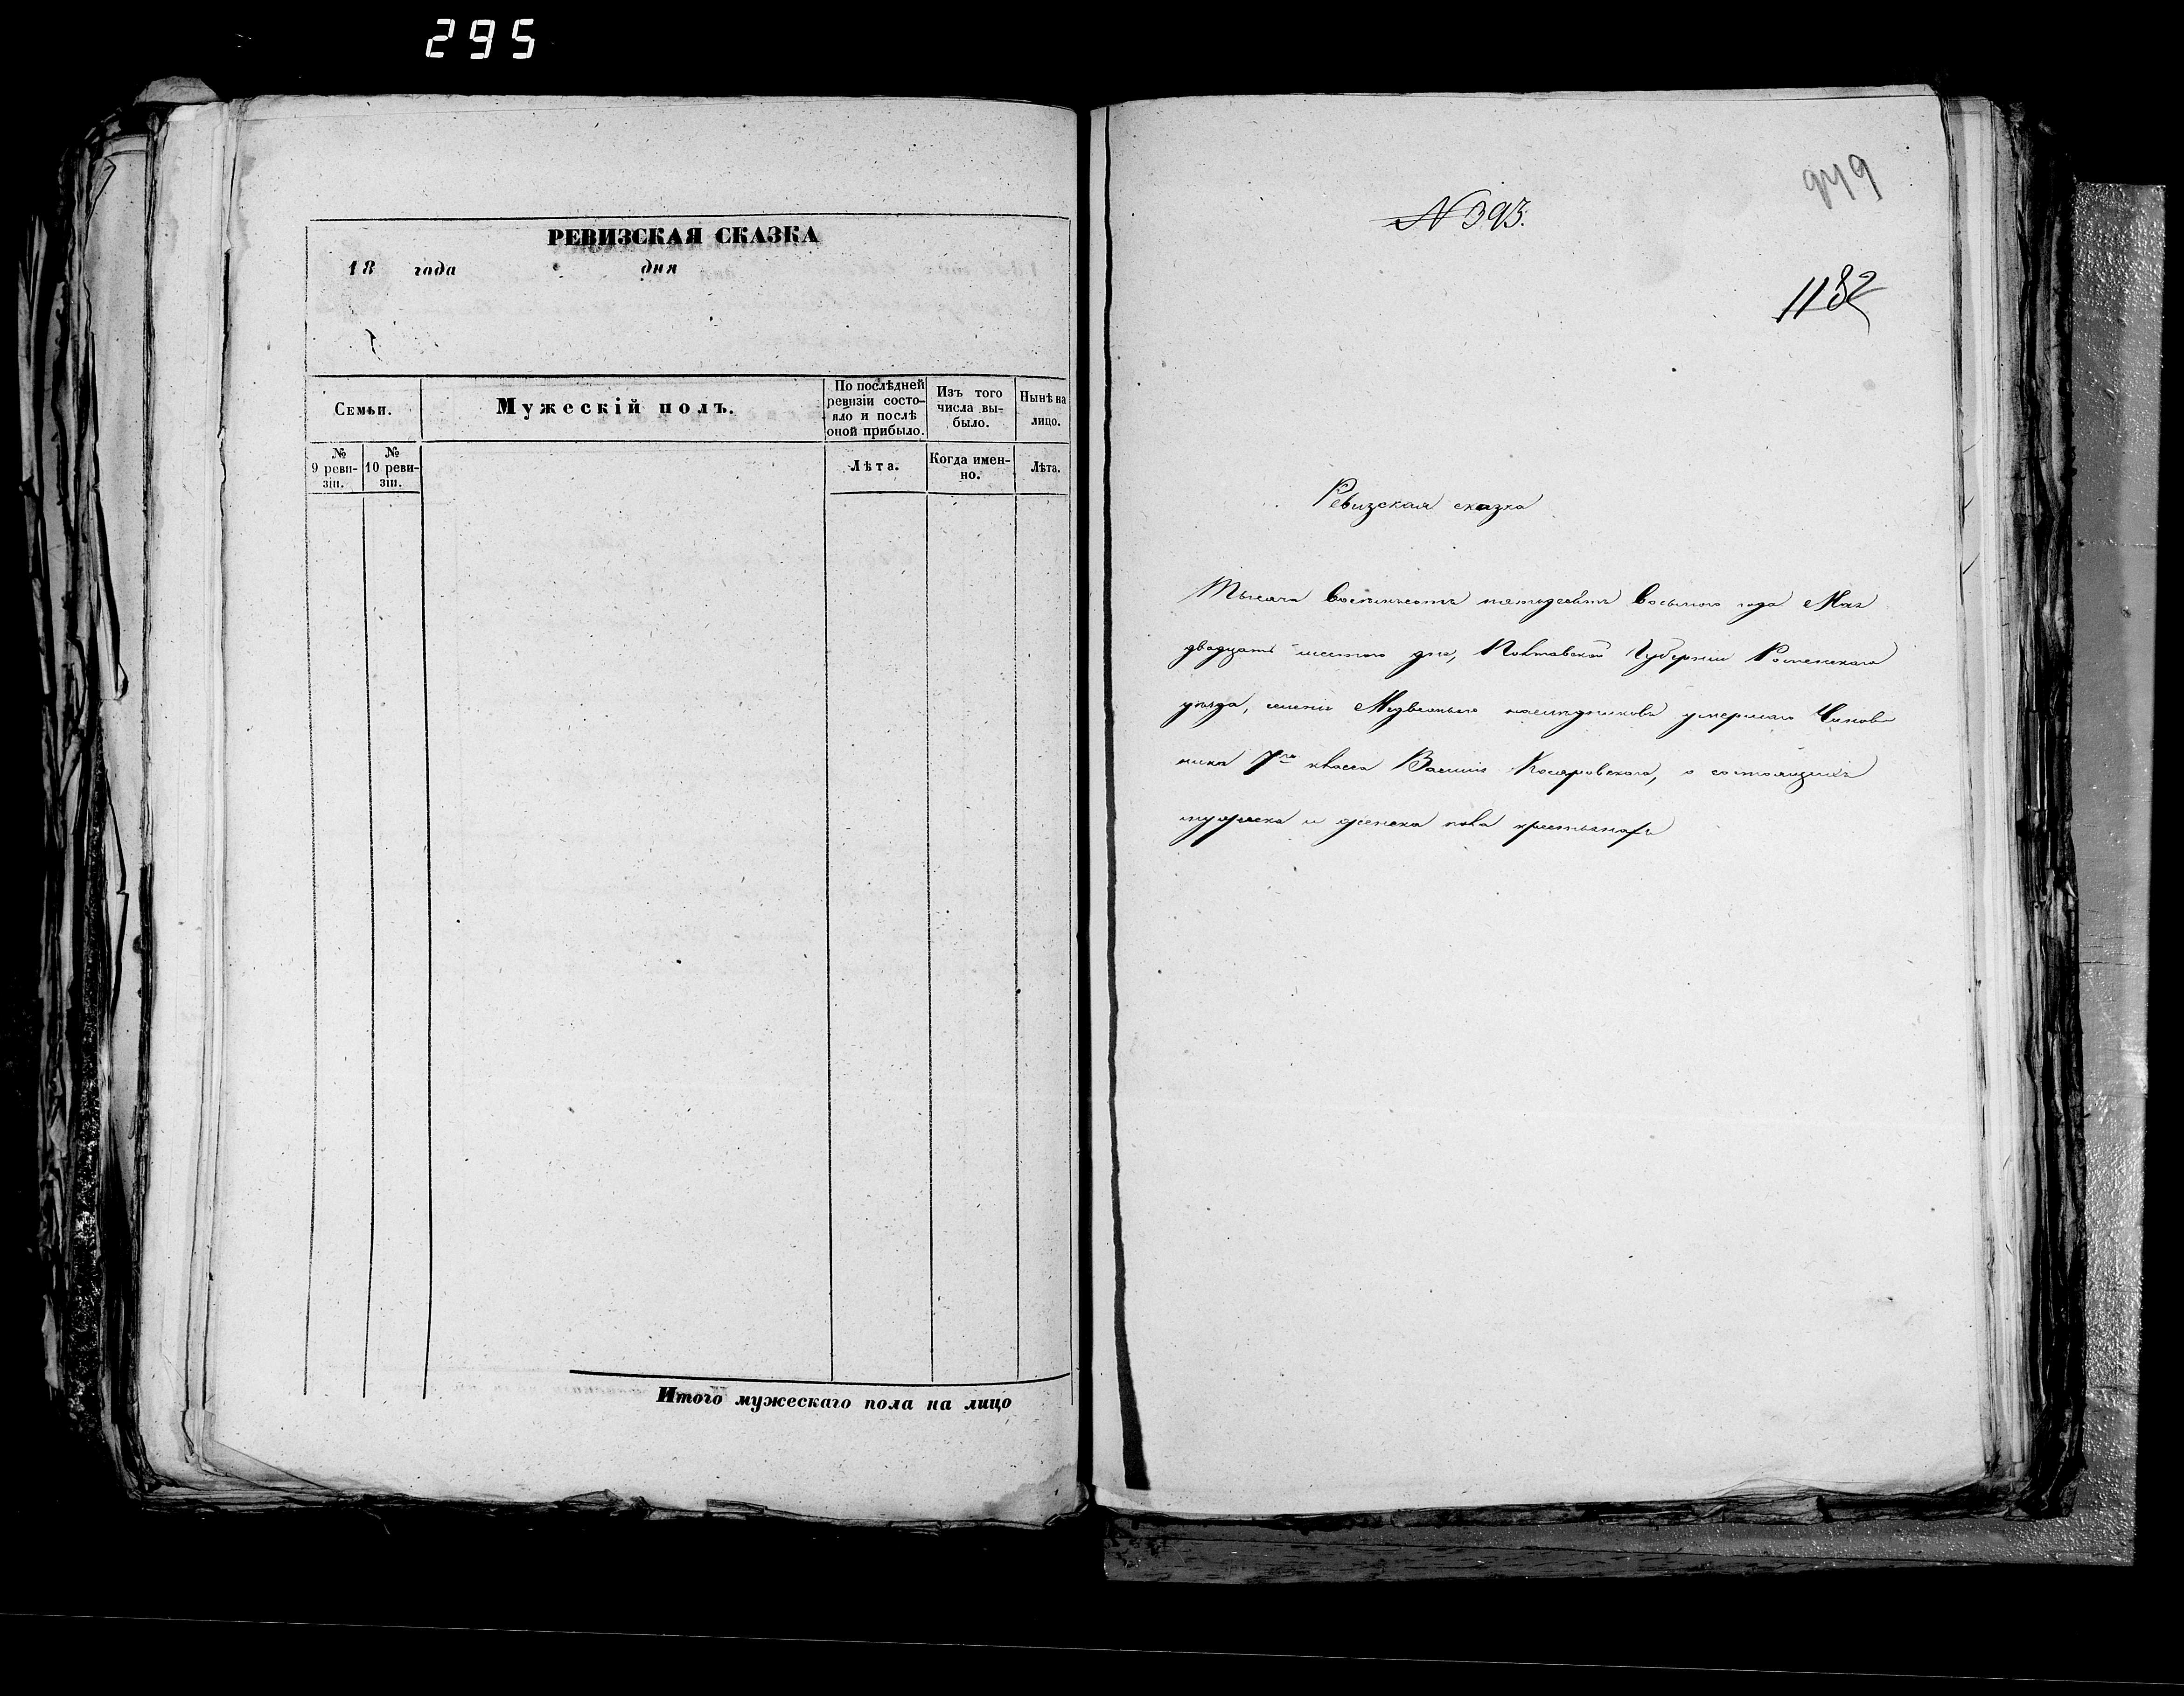 295
РЕВИЗСКАЯ СКАЗКА
18 года дня
Семьи.
Мужескій полъ.
По послѣдней
ревизіи состо-
яло и послѣ
оной прибыло.
Изъ того
числа вы-
было.
Нынѣ на
лицо.
№
9 реви-
зіи.
№
10 реви-
зіи.
Лѣта.
Когда имен-
но.
Лѣта.
Итого мужескаго пола на лицо
949
N 393.
1182
Ревизская сказка
Тысяча восемьсотъ пятьдесятъ восьмого года Мая
двадцать шестого дня, Полтавской Губерніи Роменскаго
уѣзда, наслѣдниковъ умершаго Чинов
ника 7го класса Василія Косяровскаго, о состоящихъ
мужеска и женска пола крестьянахъ